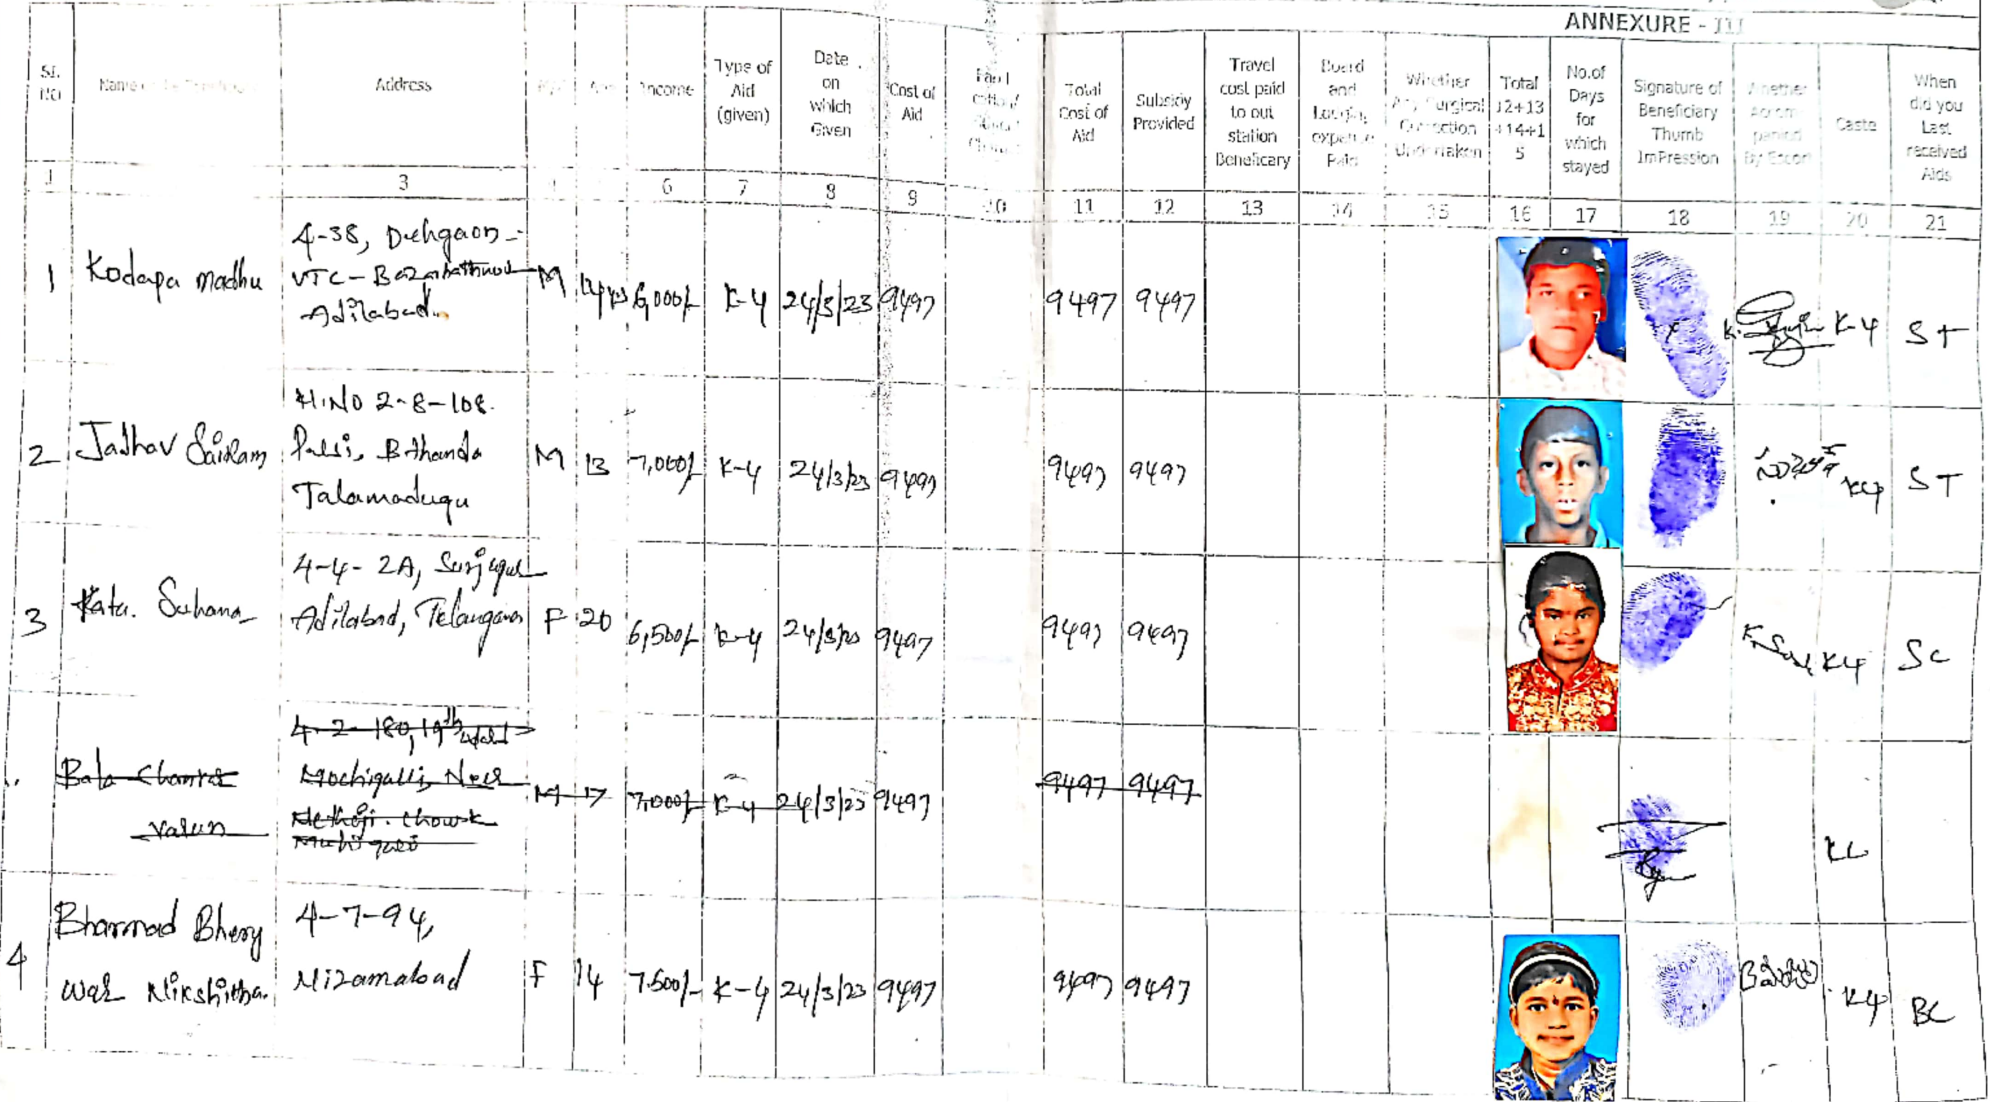 ANNEXURE - III
Sr. No
Name of the
Address
Income
Type of Aid (given)
Date on which Given
Cost of Aid
Total Cost of Aid
Subsidy Provided
Travel cost paid to out station Beneficary
Board and Lodging expense Paid
Whether Any Surgical Correction Undertaken
Total 12+13+14+15
No.of Days for which stayed
Signature of Beneficiary Thumb ImPression
Whether Accom panied By Escort
Caste
When did you Last received Aids
1 3 6 7 8 9 10 11 12 13 14 15 16 17 18 19 20 21
1 Kodapa madhu
4-38,
VTC -
Adilabad.
M 6,000/- K-4 24/3/23 9497 9497 9497 K-4 ST
2 Jadhav Sairam
H.NO 2-8-108.
Talamadugu
M 13 7,000/- K-4 24/3/23 9497 9497 9497 K4 ST
3 Kata. Suhana
4-4-2A,
Adilabad, Telangana
F 20 6,500/- K-4 24/3/23 9497 9497 9497 K4 SC
Bala
Varun
4-2-180, 19th ward
Mochigalli, Near
Nethaji. chowk
M 17 7,000/- K-4 24/3/23 9497 9497 9497
4 Bharmad
war Nikshitha.
4-7-94,
Nizamabad
F 14 7.500/- K-4 24/3/23 9497 9497 9497 K4 BC